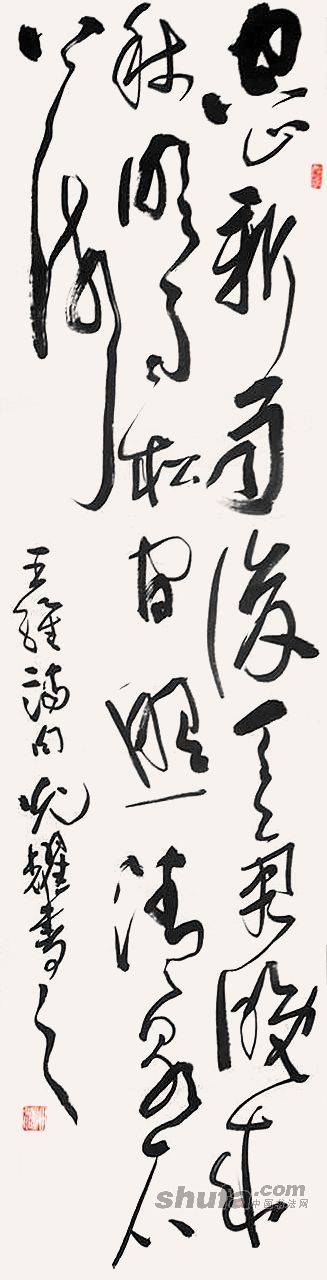 空山新雨後天氣晚來
秋明月松間照清泉石
上流
王維詩句 耀書
shufa.com
中国书法网